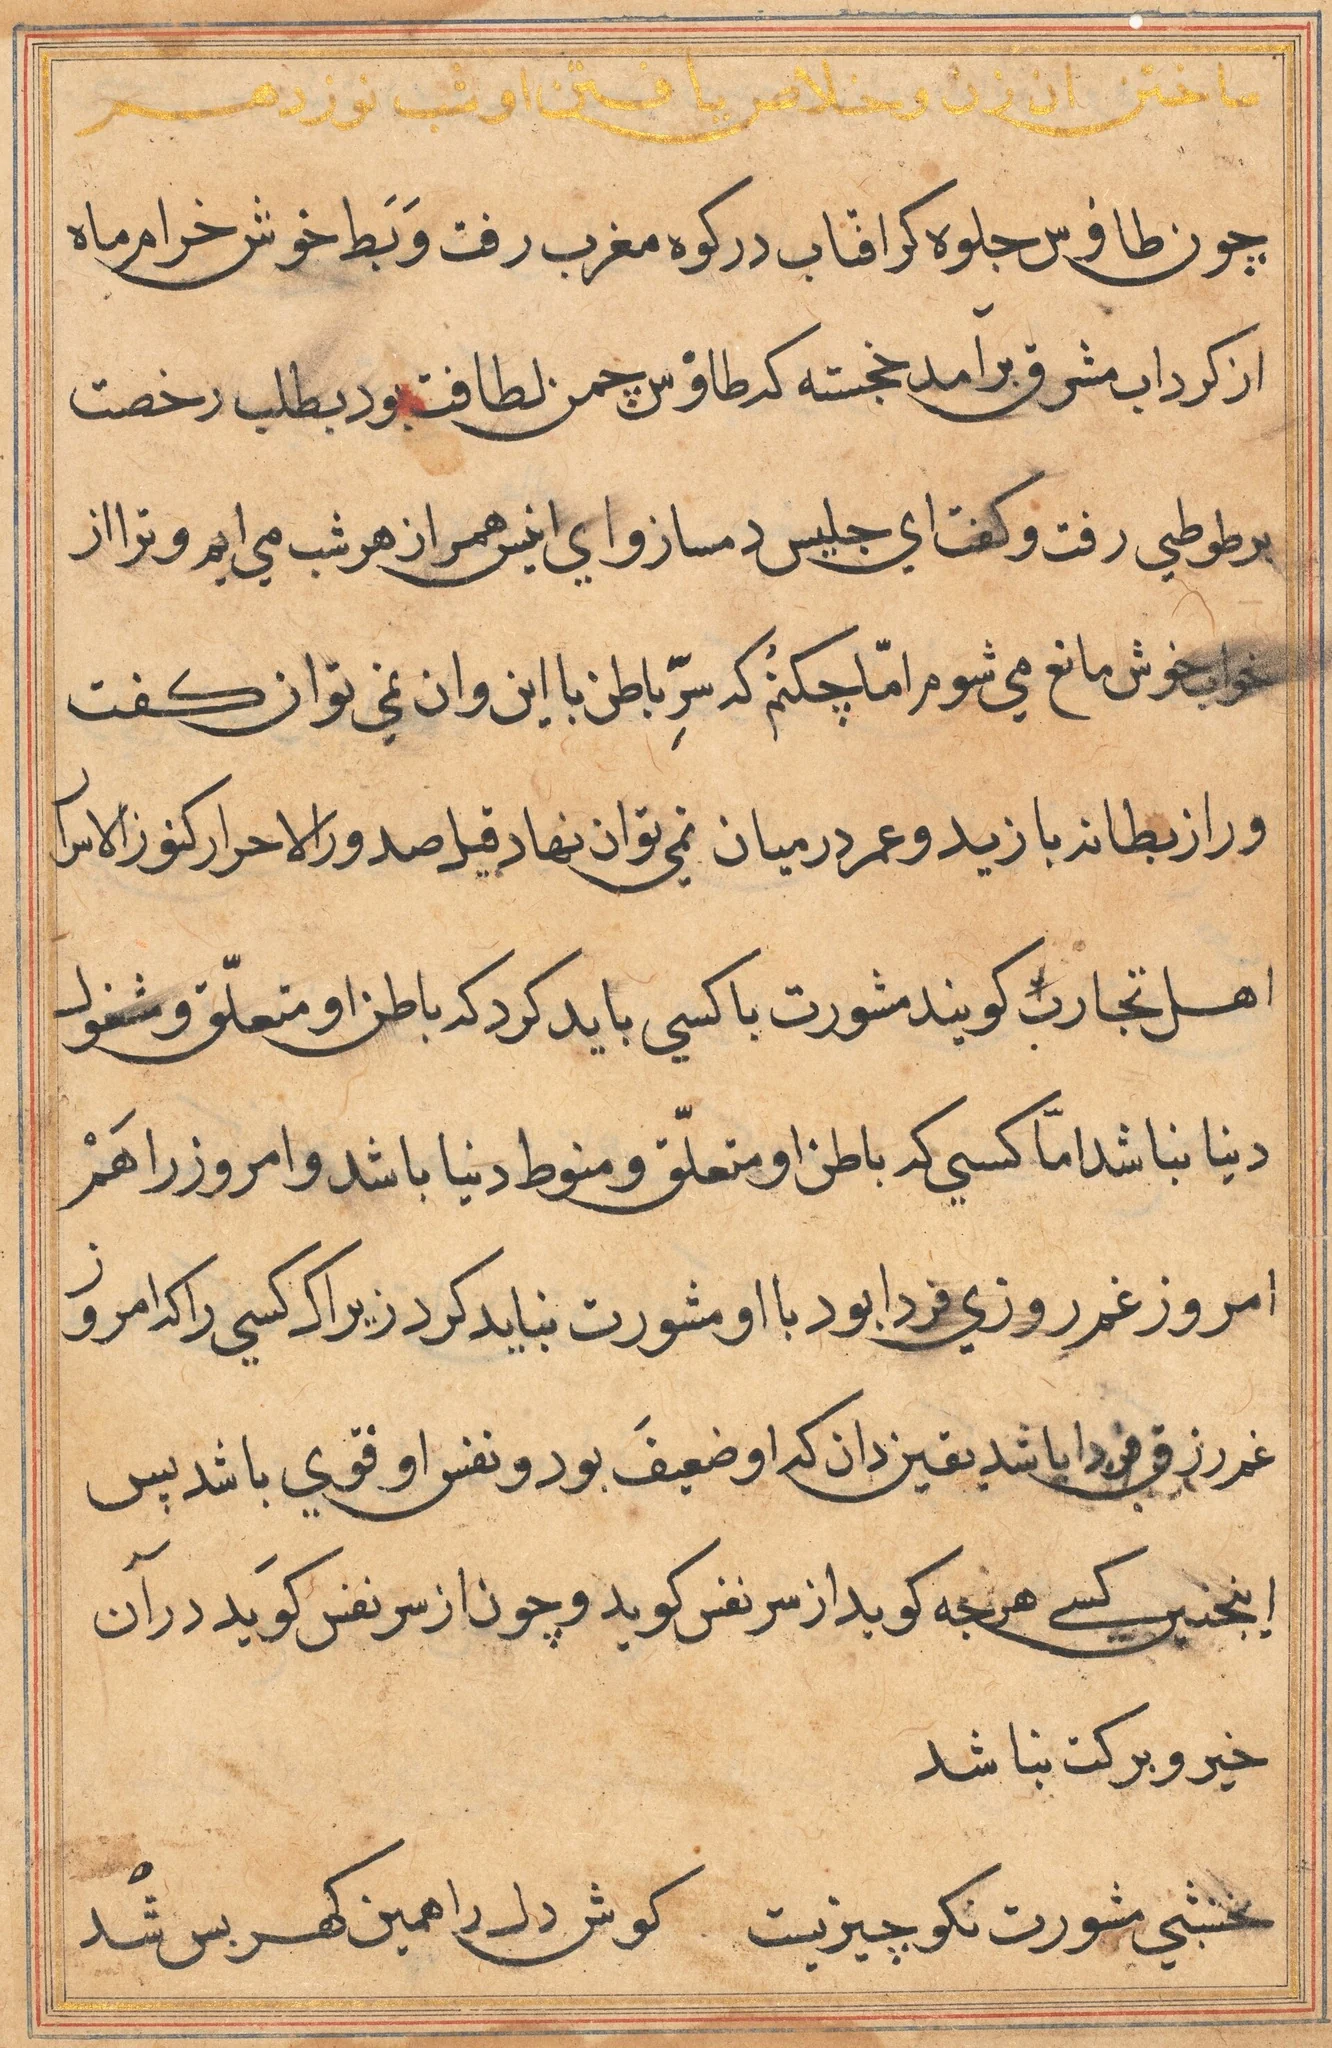 ساختن ان زن و خلاص یافتن او شب نوزدهم
چون طاوس جلوه کر افتاب در کوه مغرب رفت وَبَط خوش خرام ماه
از کرداب مشرق برآمد خجسته که طاوس چمن لطافت بود بطلب رخصت
بر طوطي رفت و کفت اي جلیس دمساز و اي انیس همراز هر شب مي ایم و ترا از
خواب خوش مانع مي شوم امّا چکنمْ که سرِّ باطن با این و ان نمي توان کفت
و راز بطانه با زید و عمر در میان نمي توان نهاد قیل صدور الاحرار کنوز الاسرار
اهل تجارب کویند مشورت با کسي باید کرد که باطن او متعلّق و مشغول
دنیا نباشد امّا کسي که باطن او متعلّق و منوط دنیا باشد و امروز را هَمْ
امروز غم روزي فردا بود با او مشورت نباید کرد زیرا که کسي را که امروز
غم رزق فردا باشد یقین دان که او ضعیفَ بود و نفس او قوي باشد پس
اینچنین کسے هرچه کوید از سر نفس کوید و چون از سر نفس کوَید در آن
خیر و برکت نباشد
نخشبي مشورت نکو چیزیست کوش دل را همین کهر بس شُد